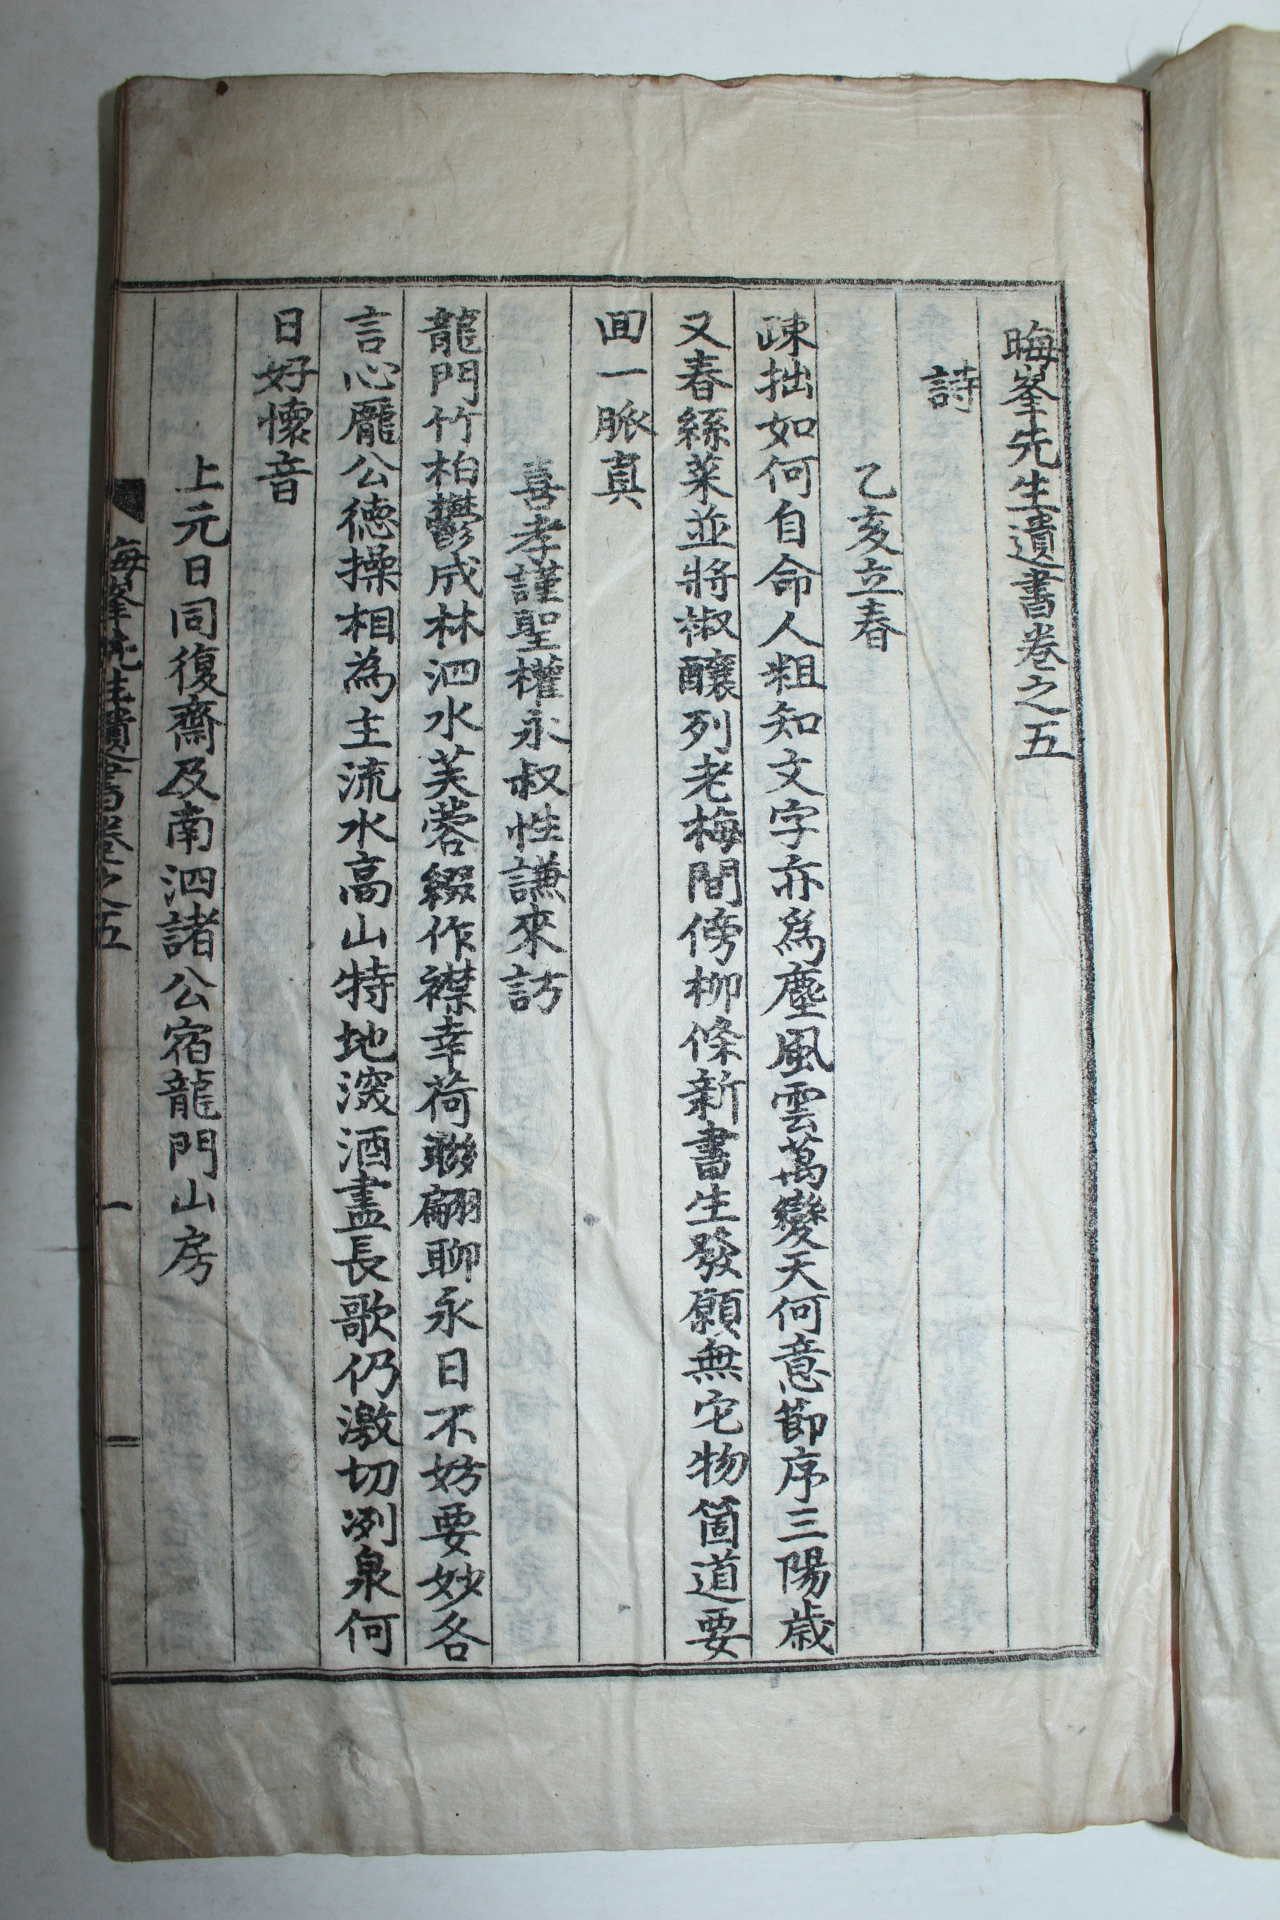 晦峯先生遺書卷之五
詩
乙亥立春
疎拙如何自命人粗知文字亦爲塵風雲萬變天何意節序三陽歲
又春絲菜並將椒釀列老梅間傍柳條新書生發願無它物箇道要
回一脈眞
喜孝謹聖權永叔性謙來訪
龍門竹柏鬱成林泗水芙蓉綴作襟幸荷聯翩聊永日不妨要妙各
言心龐公德操相為主流水高山特地深酒盡長歌仍激切冽泉何
日好懷音
上元日同復齋及南泗諸公宿龍門山房
晦峯先生遺書卷之五
一